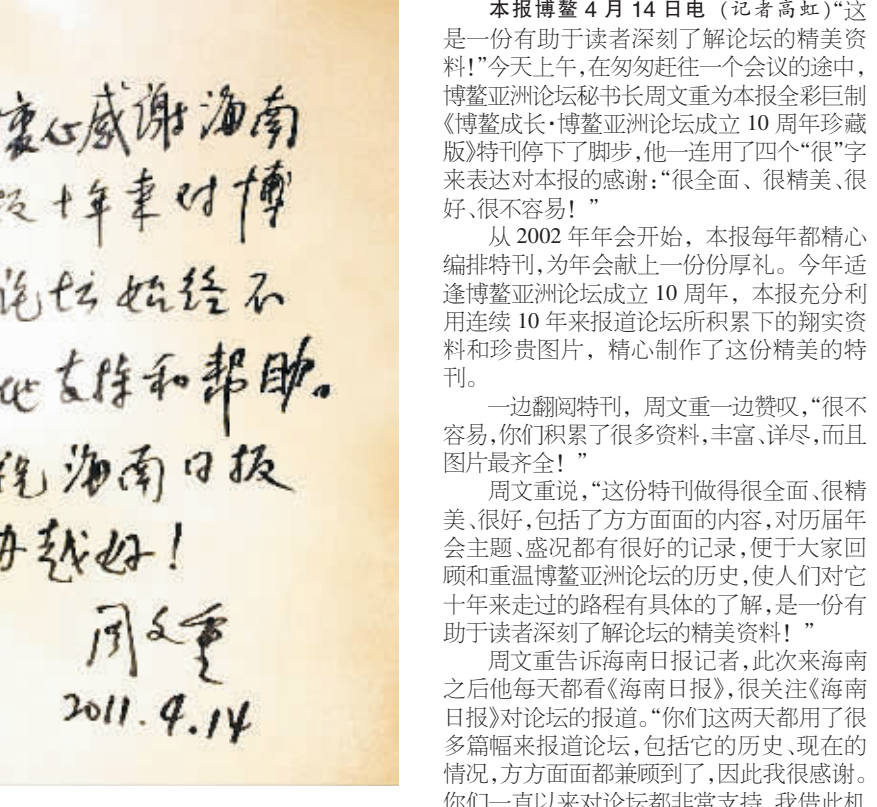 衷心感谢海南
报十年来对博
论坛始终不
地支持和帮助。
祝海南日报
办越好！
周文重
2011.4.14
本报博鳌4月14日电（记者高虹）“这
是一份有助于读者深刻了解论坛的精美资
料！”今天上午，在匆匆赶往一个会议的途中，
博鳌亚洲论坛秘书长周文重为本报全彩巨制
《博鳌成长·博鳌亚洲论坛成立10周年珍藏
版》特刊停下了脚步，他一连用了四个“很”字
来表达对本报的感谢：“很全面、很精美、很
好、很不容易！”
从2002年年会开始，本报每年都精心
编排特刊，为年会献上一份份厚礼。今年适
逢博鳌亚洲论坛成立10周年，本报充分利
用连续10年来报道论坛所积累下的翔实资
料和珍贵图片，精心制作了这份精美的特
刊。
一边翻阅特刊，周文重一边赞叹，“很不
容易，你们积累了很多资料，丰富、详尽，而且
图片最齐全！”
周文重说，“这份特刊做得很全面、很精
美、很好，包括了方方面面的内容，对历届年
会主题、盛况都有很好的记录，便于大家回
顾和重温博鳌亚洲论坛的历史，使人们对它
十年来走过的路程有具体的了解，是一份有
助于读者深刻了解论坛的精美资料！”
周文重告诉海南日报记者，此次来海南
之后他每天都看《海南日报》，很关注《海南
日报》对论坛的报道。“你们这两天都用了很
多篇幅来报道论坛，包括它的历史、现在的
情况，方方面面都兼顾到了，因此我很感谢。
你们一直以来对论坛都非常支持，我借此机